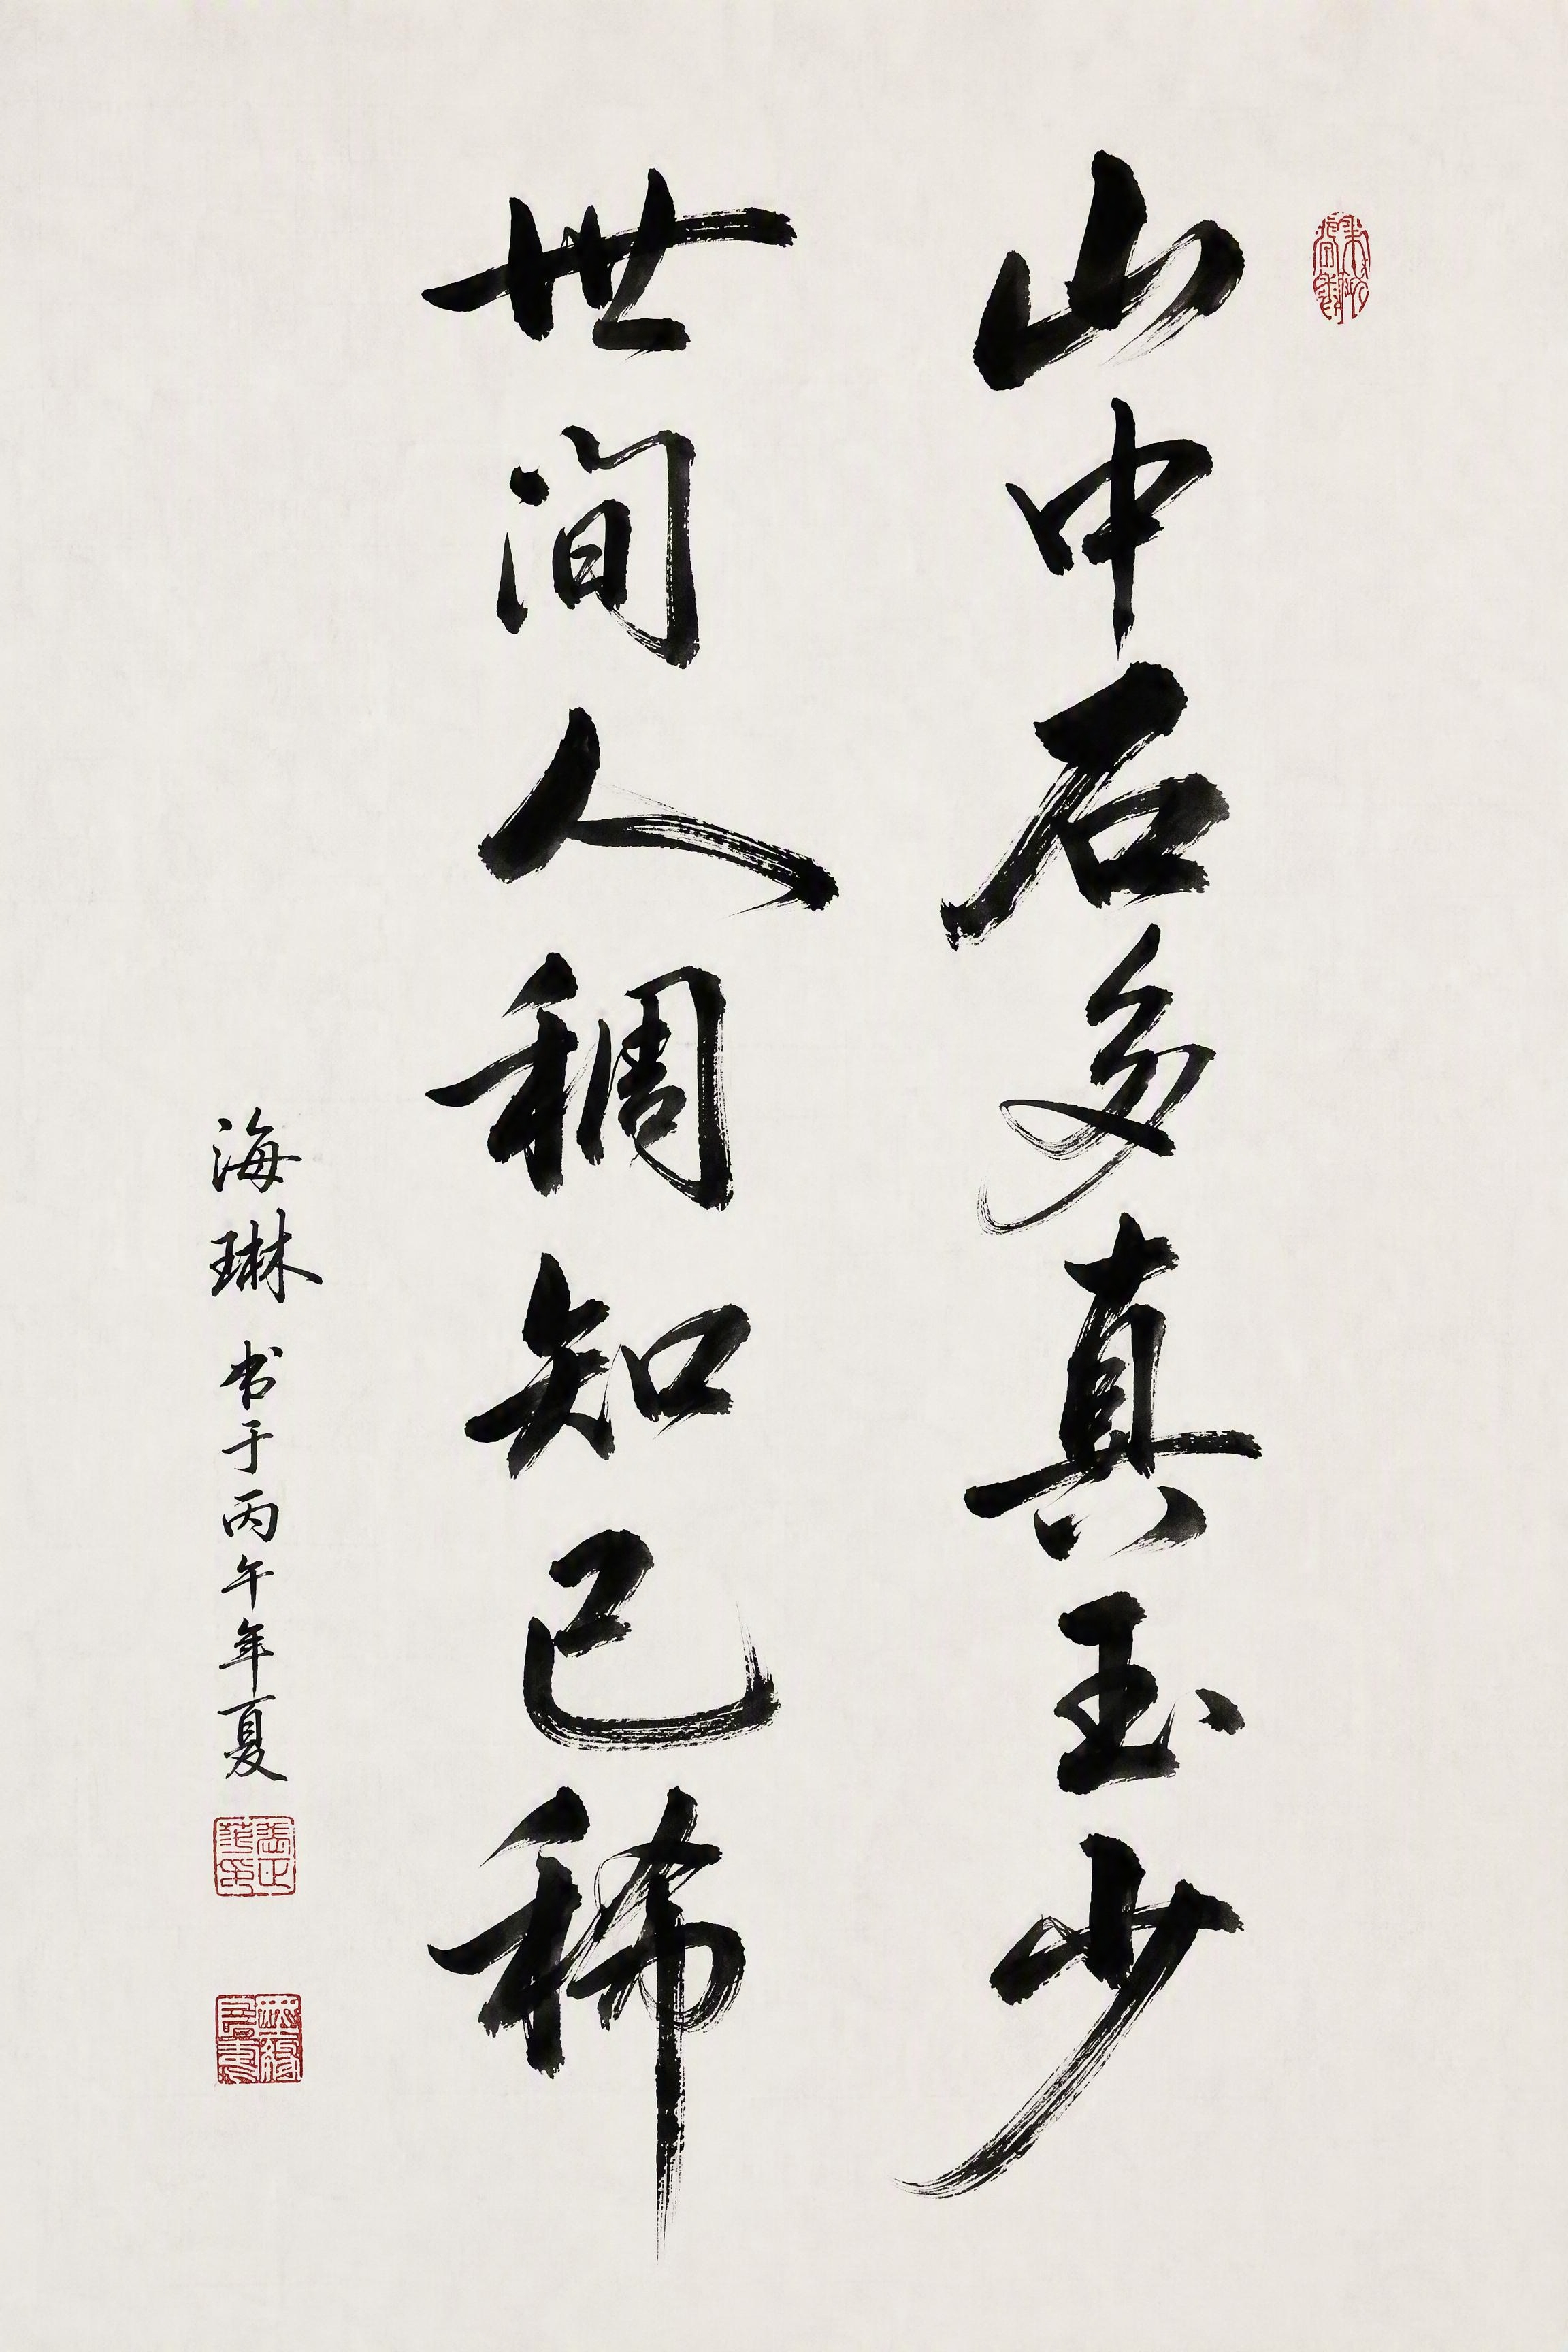 山中石多真玉少
世间人稠知己稀
海琳书于丙午年夏